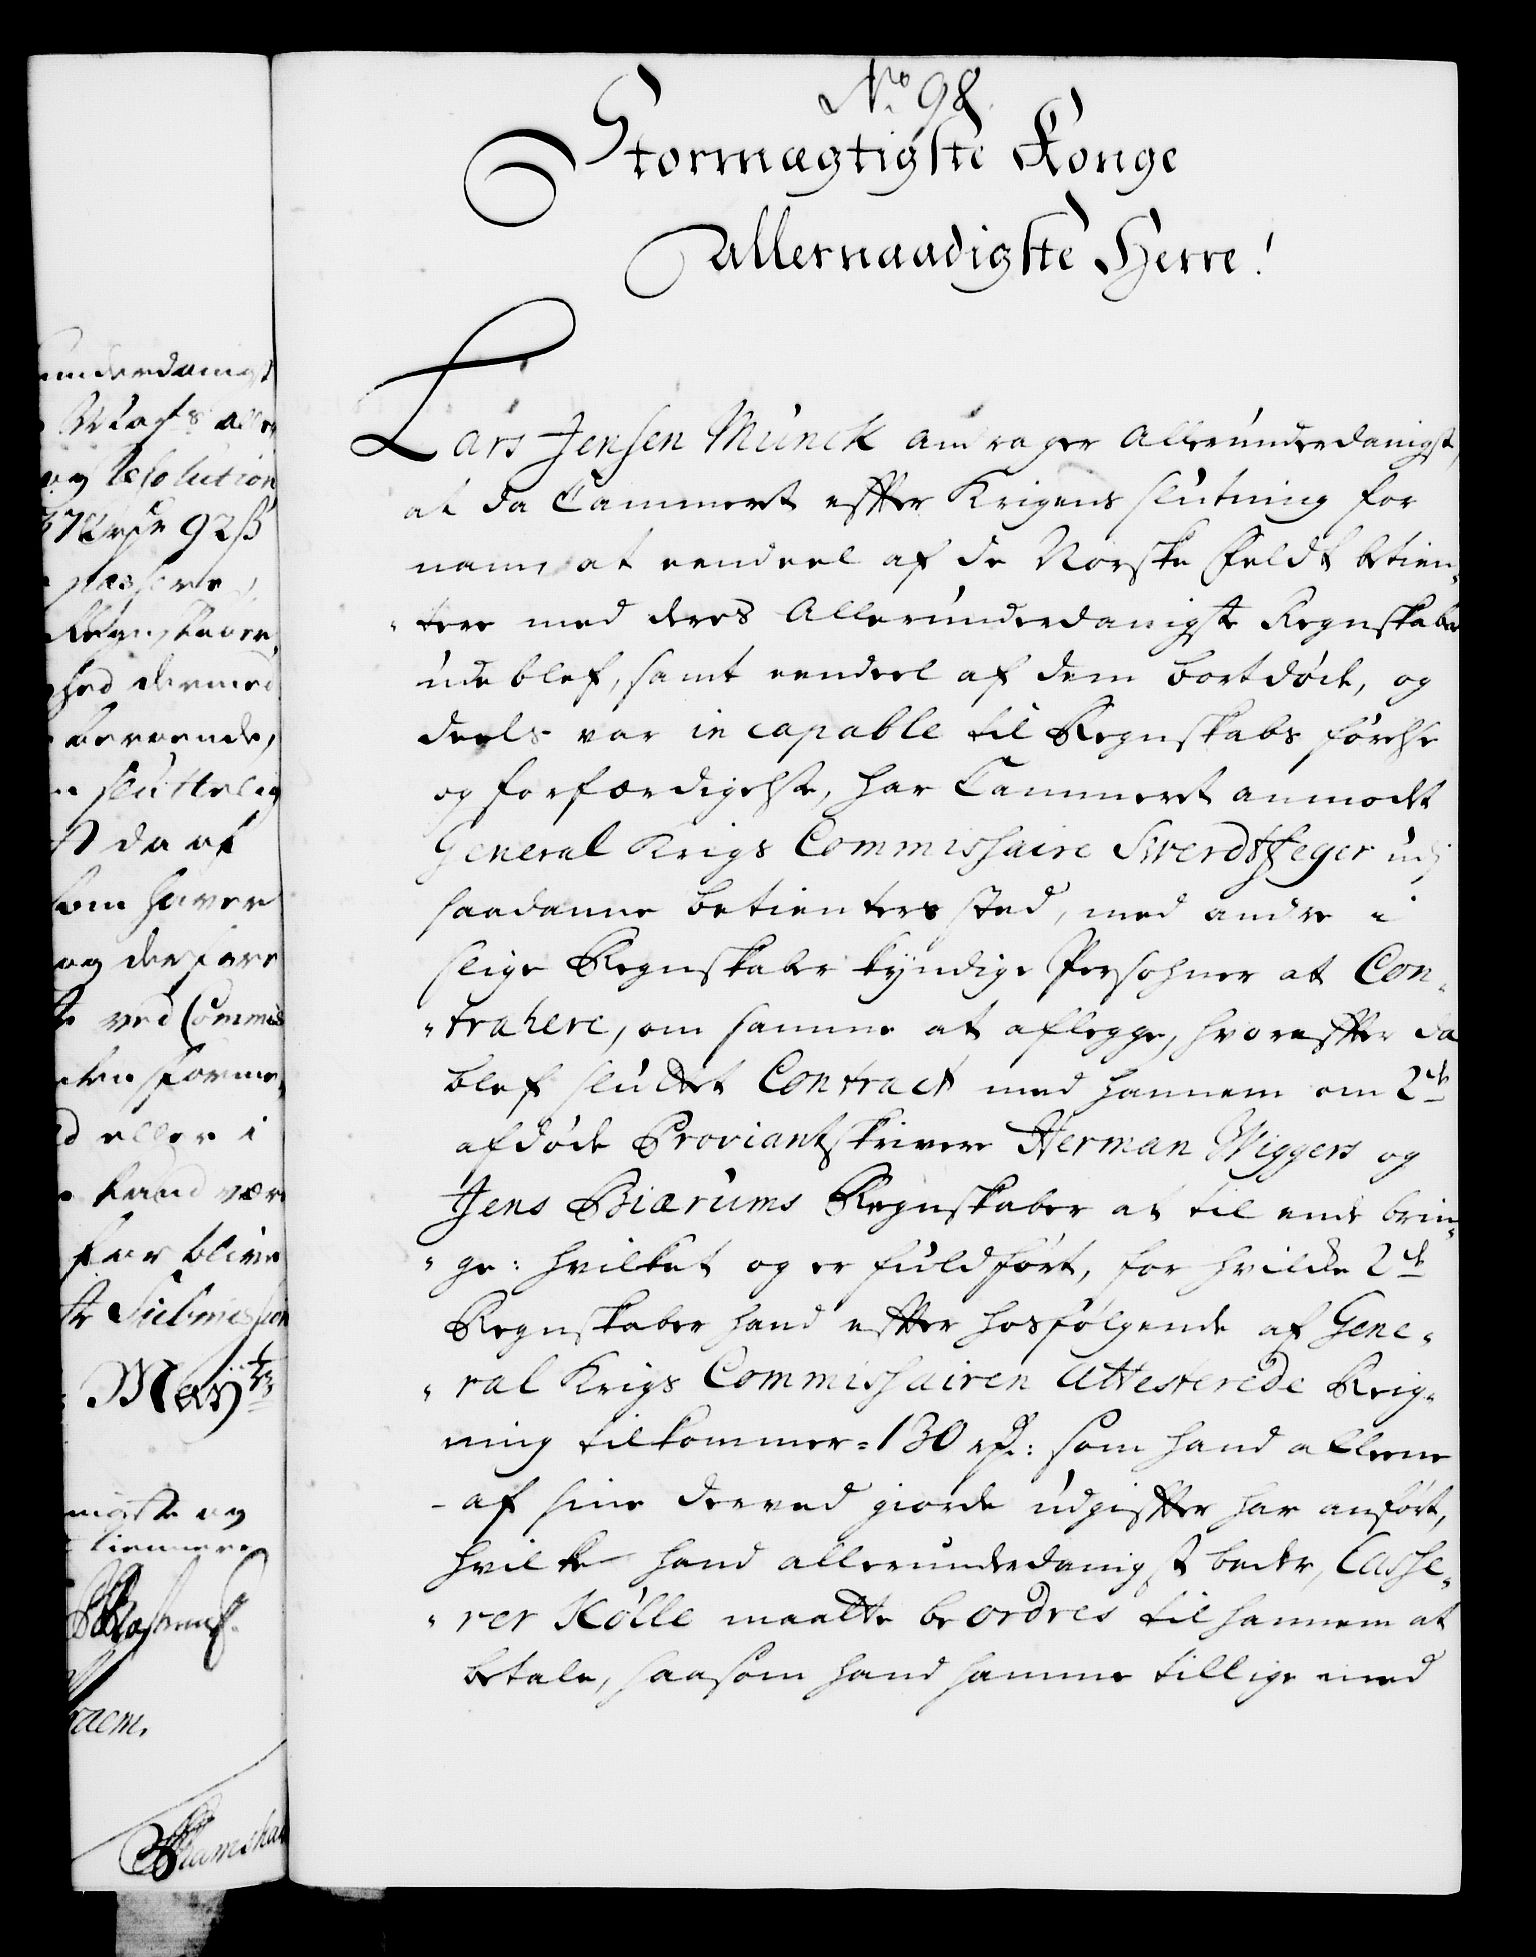 No 98.
Stormægtigste Konge
Allernaadigste Herre!
Lars Jensen Munck andrager allerunderdanigst,
at da Cammeret efter Krigens slutning for
nam, at eendeel af de Norske Feldt betien-
tere med deres allerunderdanigste Regnskaber
udeblef, samt eendeel af dem bortdöde, og
deels var incapable til Regnskabs förelse
og forfærdigelse, har Cammeret anmodet
General Krigs Commissaire Sverdtfeger udj
saadanne betienters sted, med andre i
slige Regnskaber kyndige Persohner at Con-
trahere, om samme at aflegge, hvorefter da
blef sluttet Contract med hannem om 2de
afdöde Proviantskrivere Herman Wiggers og
Jens Biærums Regnskaber at til ende brin-
ge: hvilket og er fuldfört, for hvilke 2de
Regnskaber hand efter hosfölgende af Gene-
ral Krigs Commissairen Attesterede Reig-
ning tilkommer 130 rd.: som hand alleene
af sine derved giorde udgifter har anfört,
hvilke hand allerunderdanigst beder, Casse-
rer Kölle maatte beordres til hannem at
betale, saasom hand samme tillige med
underdanigst
Mayts aller
og Resolution
92 ß
passere,
Regnskaber
hed dermed
beroende,
sluttelig
da at
som haver
og derfore
ved Commis
eller i
hand vær
for blive
Submission
Mayts
nigste og
tiennere